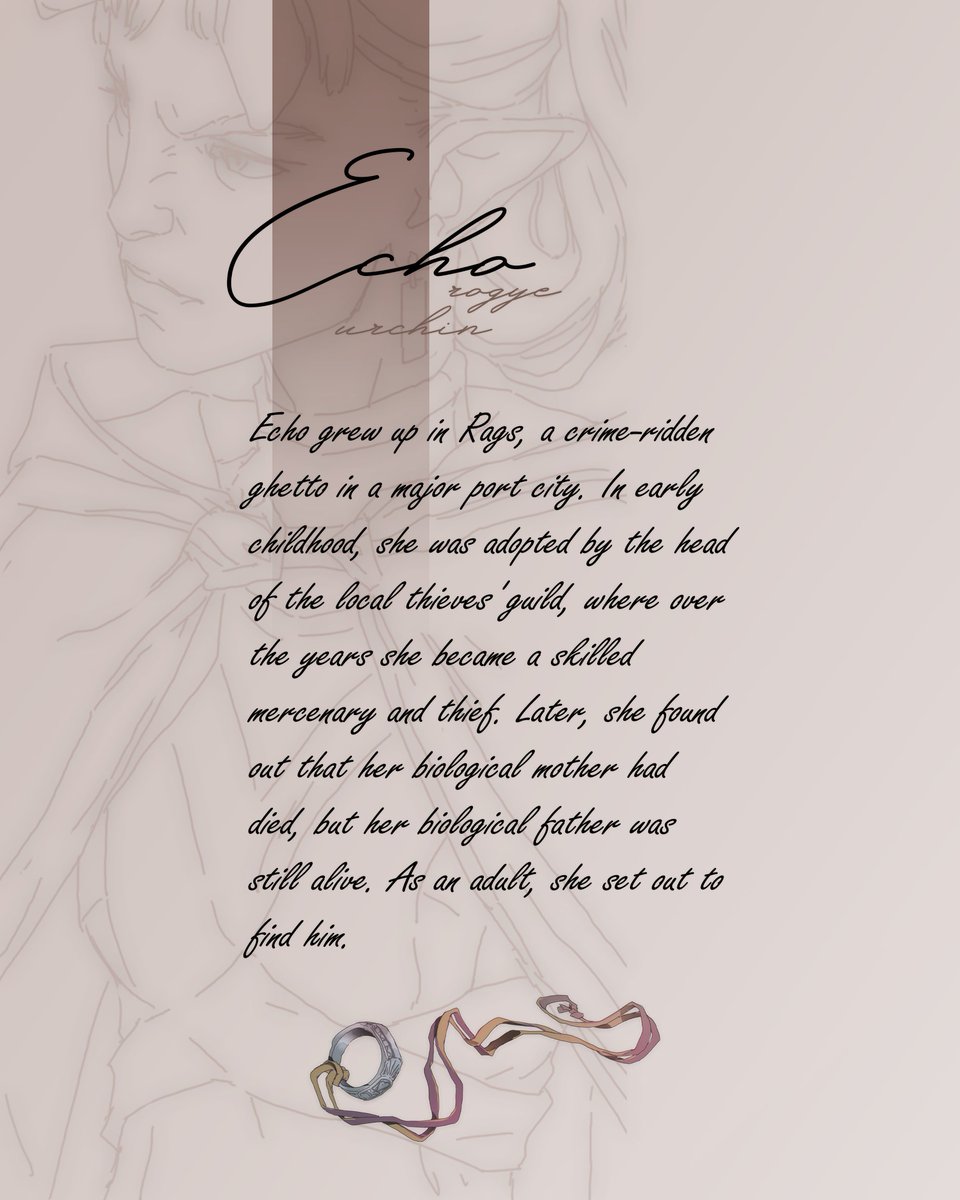 Echo
rogye
urchin
Echo grew up in Rags, a crime-ridden
ghetto in a major port city. In early
childhood, she was adopted by the head
of the local thieves' guild, where over
the years she became a skilled
mercenary and thief. Later, she found
out that her biological mother had
died, but her biological father was
still alive. As an adult, she set out to
find him.